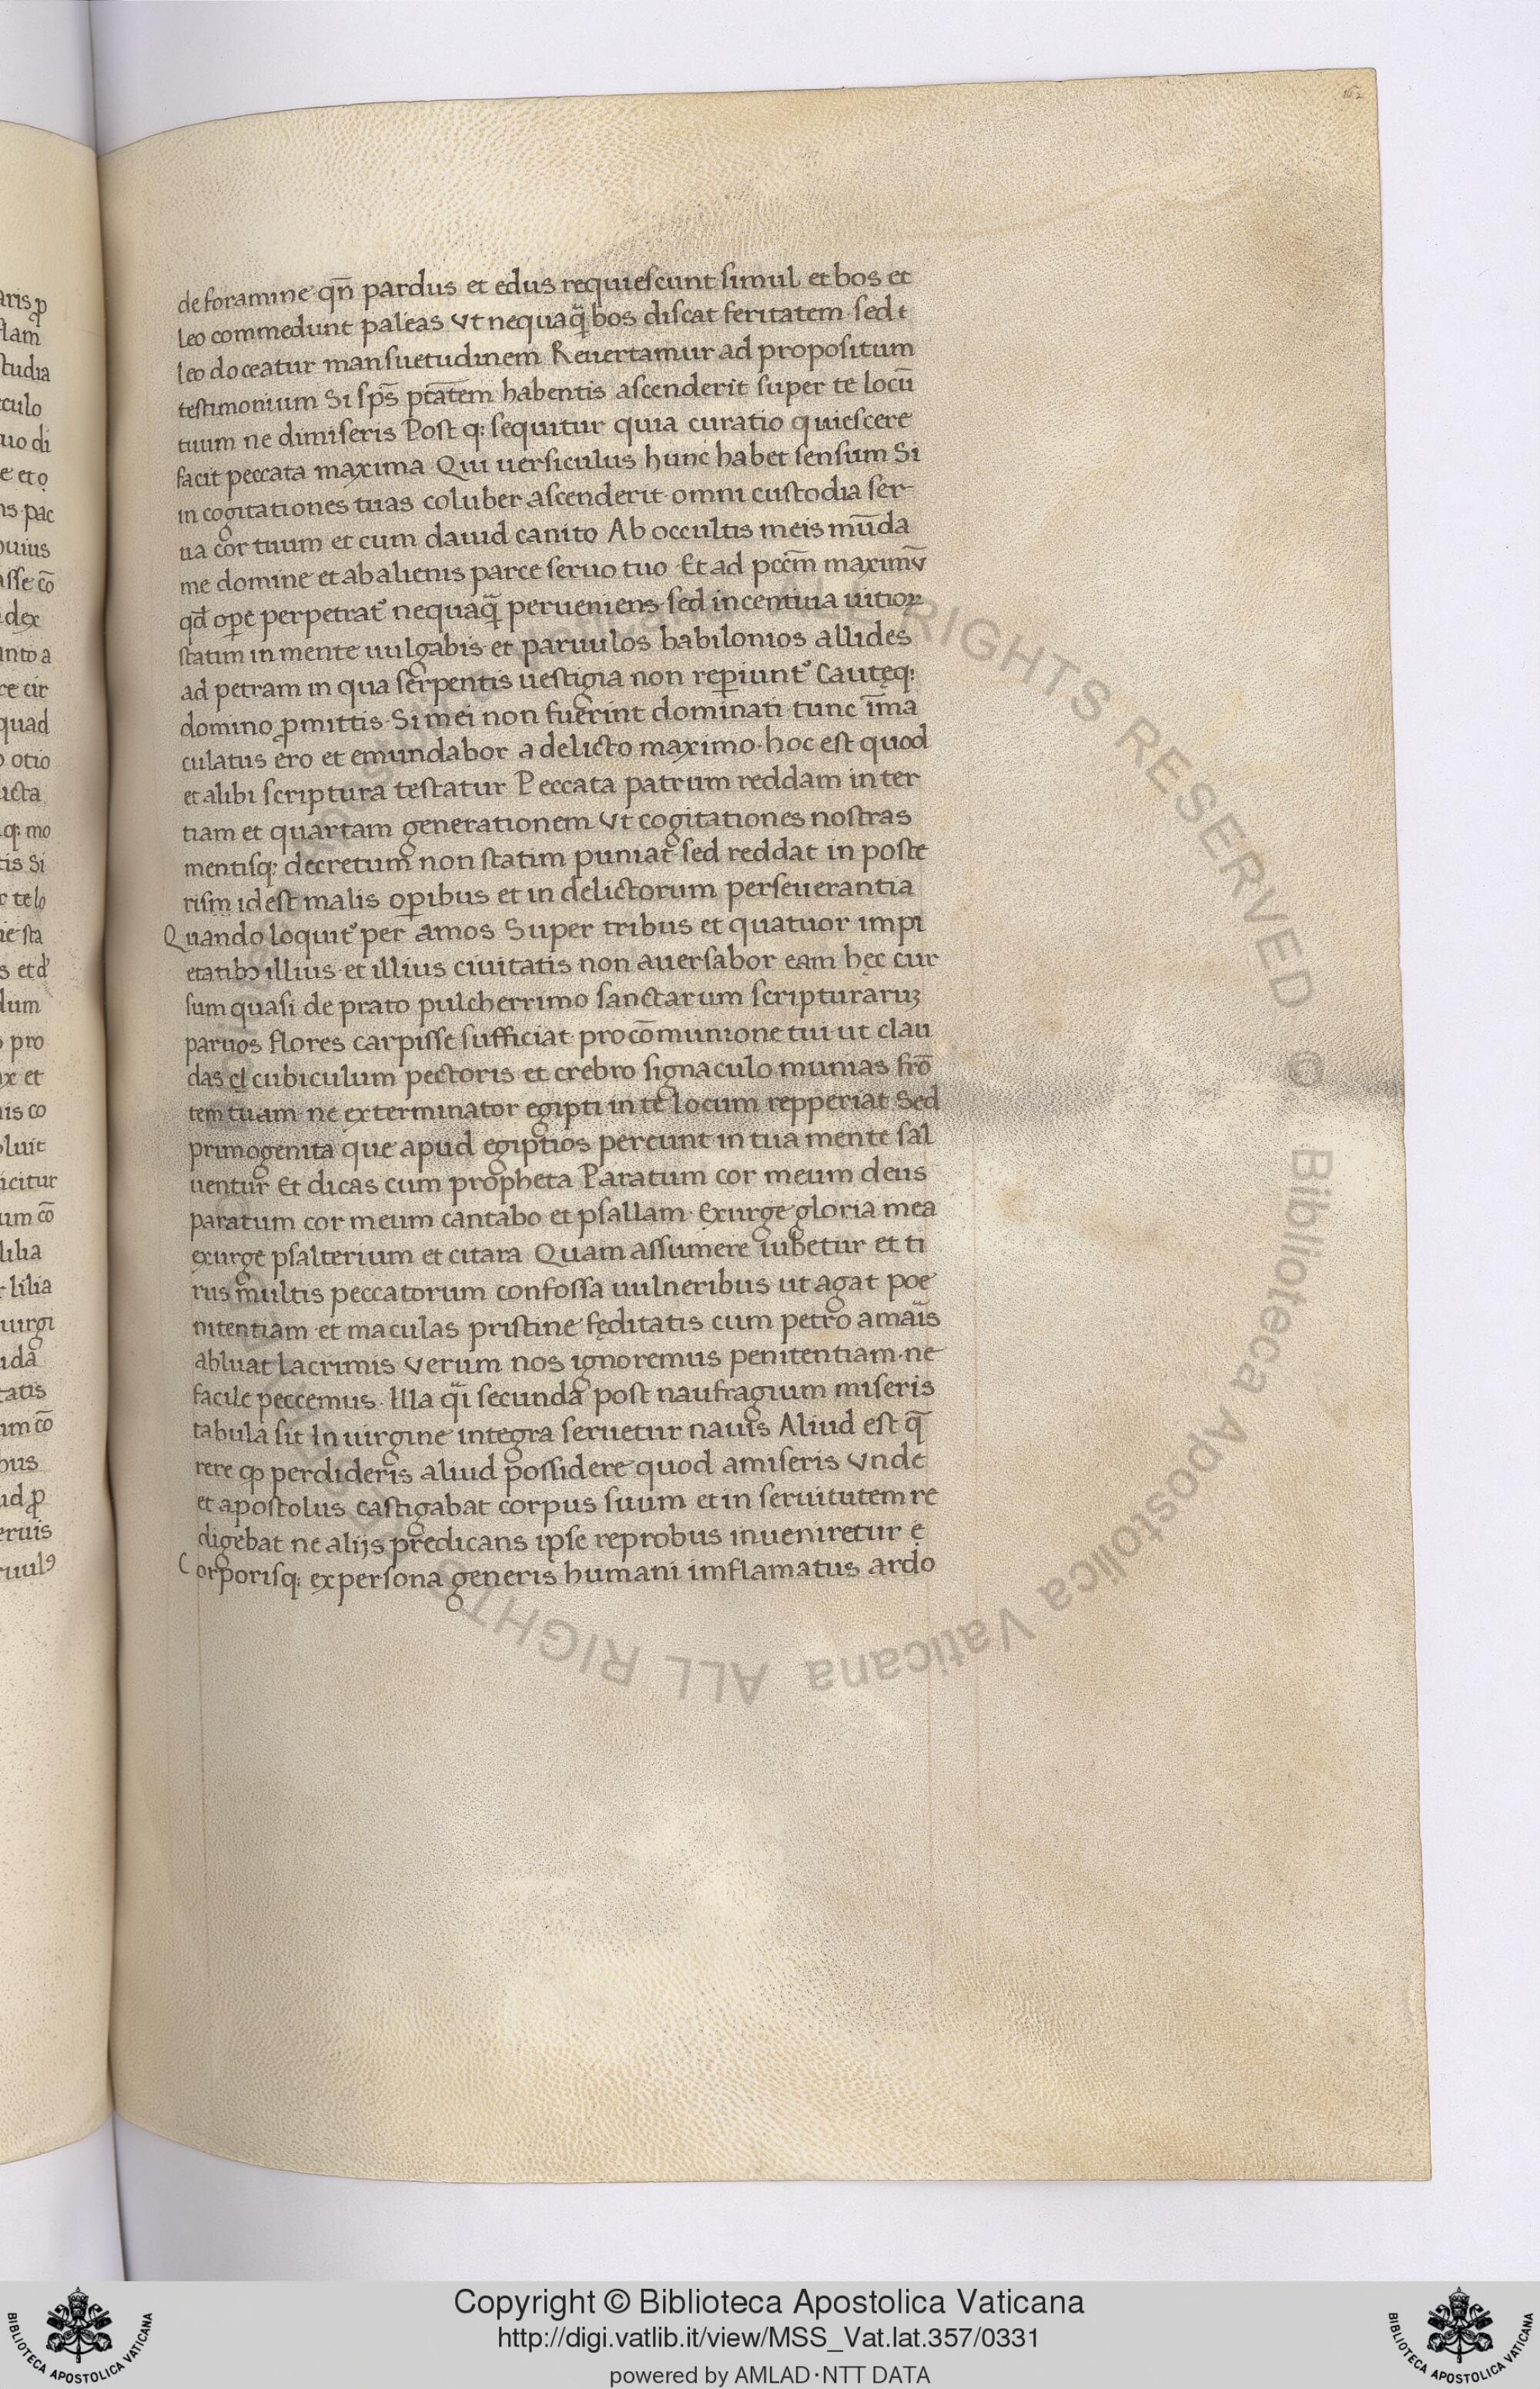 de foramine qn̄ pardus et edus requiescunt simul et bos et
leo commedunt paleas Vt nequaq̄ bos discat feritatem sed t
leo doceatur mansuetudinem Reuertamur ad propositum
testimonium Si sps̄ ptātem habentis ascenderit super te locū
tuum ne dimiseris Post q: sequitur quia curatio quiescere
facit peccata maxima Qui uersiculus hunc habet sensum Si
in cogitationes tuas coluber ascenderit omni custodia ser
ua cor tuum et cum dauid canito Ab occultis meis mūda
me domine et ab alienis parce seruo tuo Et ad pccm̄ maximū
qd̄ ope perpetrat᷒ nequaq̄ perueniens sed incentiua uitioꝝ
statim in mente uulgabis et paruulos babilonios allides
ad petram in qua serpentis uestigia non repiunt᷒ Cautęq:
domino ꝓmittis Si mei non fuerint dominati tunc im̄a
culatus ero et emundabor a delicto maximo hoc est quod
et alibi scriptura testatur Peccata patrum reddam in ter
tiam et quartam generationem Vt cogitationes nostras
mentisq: decretum non statim puniat sed reddat in poste
rism id est malis opibus et in delictorum perseuerantia
Quando loquit᷒ per amos Super tribus et quatuor impi
etatibꝫ illius et illius ciuitatis non auersabor eam hęc cur
sum quasi de prato pulcherrimo sanctarum scripturaruꝫ
paruos flores carpisse sufficiat pro cōmunione tui ut clau
das el cubiculum pectoris et crebro signaculo munias frō
tem tuam ne exterminator egipti in te locum repperiat Sed
primogenita que apud egiptios pereunt in tua mente sal
uentur Et dicas cum propheta Paratum cor meum deus
paratum cor meum cantabo et psallam Exurge gloria mea
exurge psalterium et citara Quam assumere iubetur et ti
rus multis peccatorum confossa uulneribus ut agat poe
nitentiam et maculas pristine fęditatis cum petro amaris
abluat lacrimis Verum nos ignoremus penitentiam ne
facile peccemus Illa q̄i secunda post naufragium miseris
tabula sit In uirgine integra seruetur nauis Aliud est q̄
rere ꝙ perdideris aliud possidere quod amiseris Vnde
et apostolus castigabat corpus suum et in seruitutem re
digebat ne alijs predicans ipse reprobus inueniretur ę
Corporisq: ex persona generis humani imflamatus ardo
ALL RIGHTS RESERVED © Biblioteca Apostolica Vaticana
Copyright © Biblioteca Apostolica Vaticana
http://digi.vatlib.it/view/MSS_Vat.lat.357/0331
powered by AMLAD·NTT DATA
BIBLIOTECA APOSTOLICA VATICANA
BIBLIOTECA APOSTOLICA VATICANA